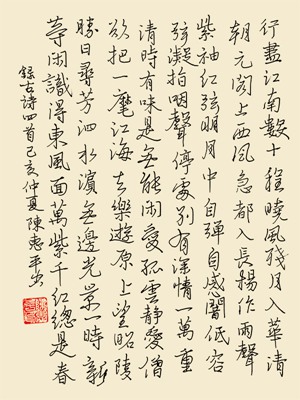 行盡江南數十程曉風殘月入華清
朝元閣上西風急都入長楊作雨聲
紫袖紅弦明月中自彈自感闇低容
弦凝指咽聲停處別有深情一萬重
清時有味是無能閑愛孤雲靜愛僧
欲把一麾江海去樂遊原上望昭陵
勝日尋芳泗水濱無邊光景一時新
等閑識得東風面萬紫千紅總是春
錄古詩四首己亥仲夏陳惠平書